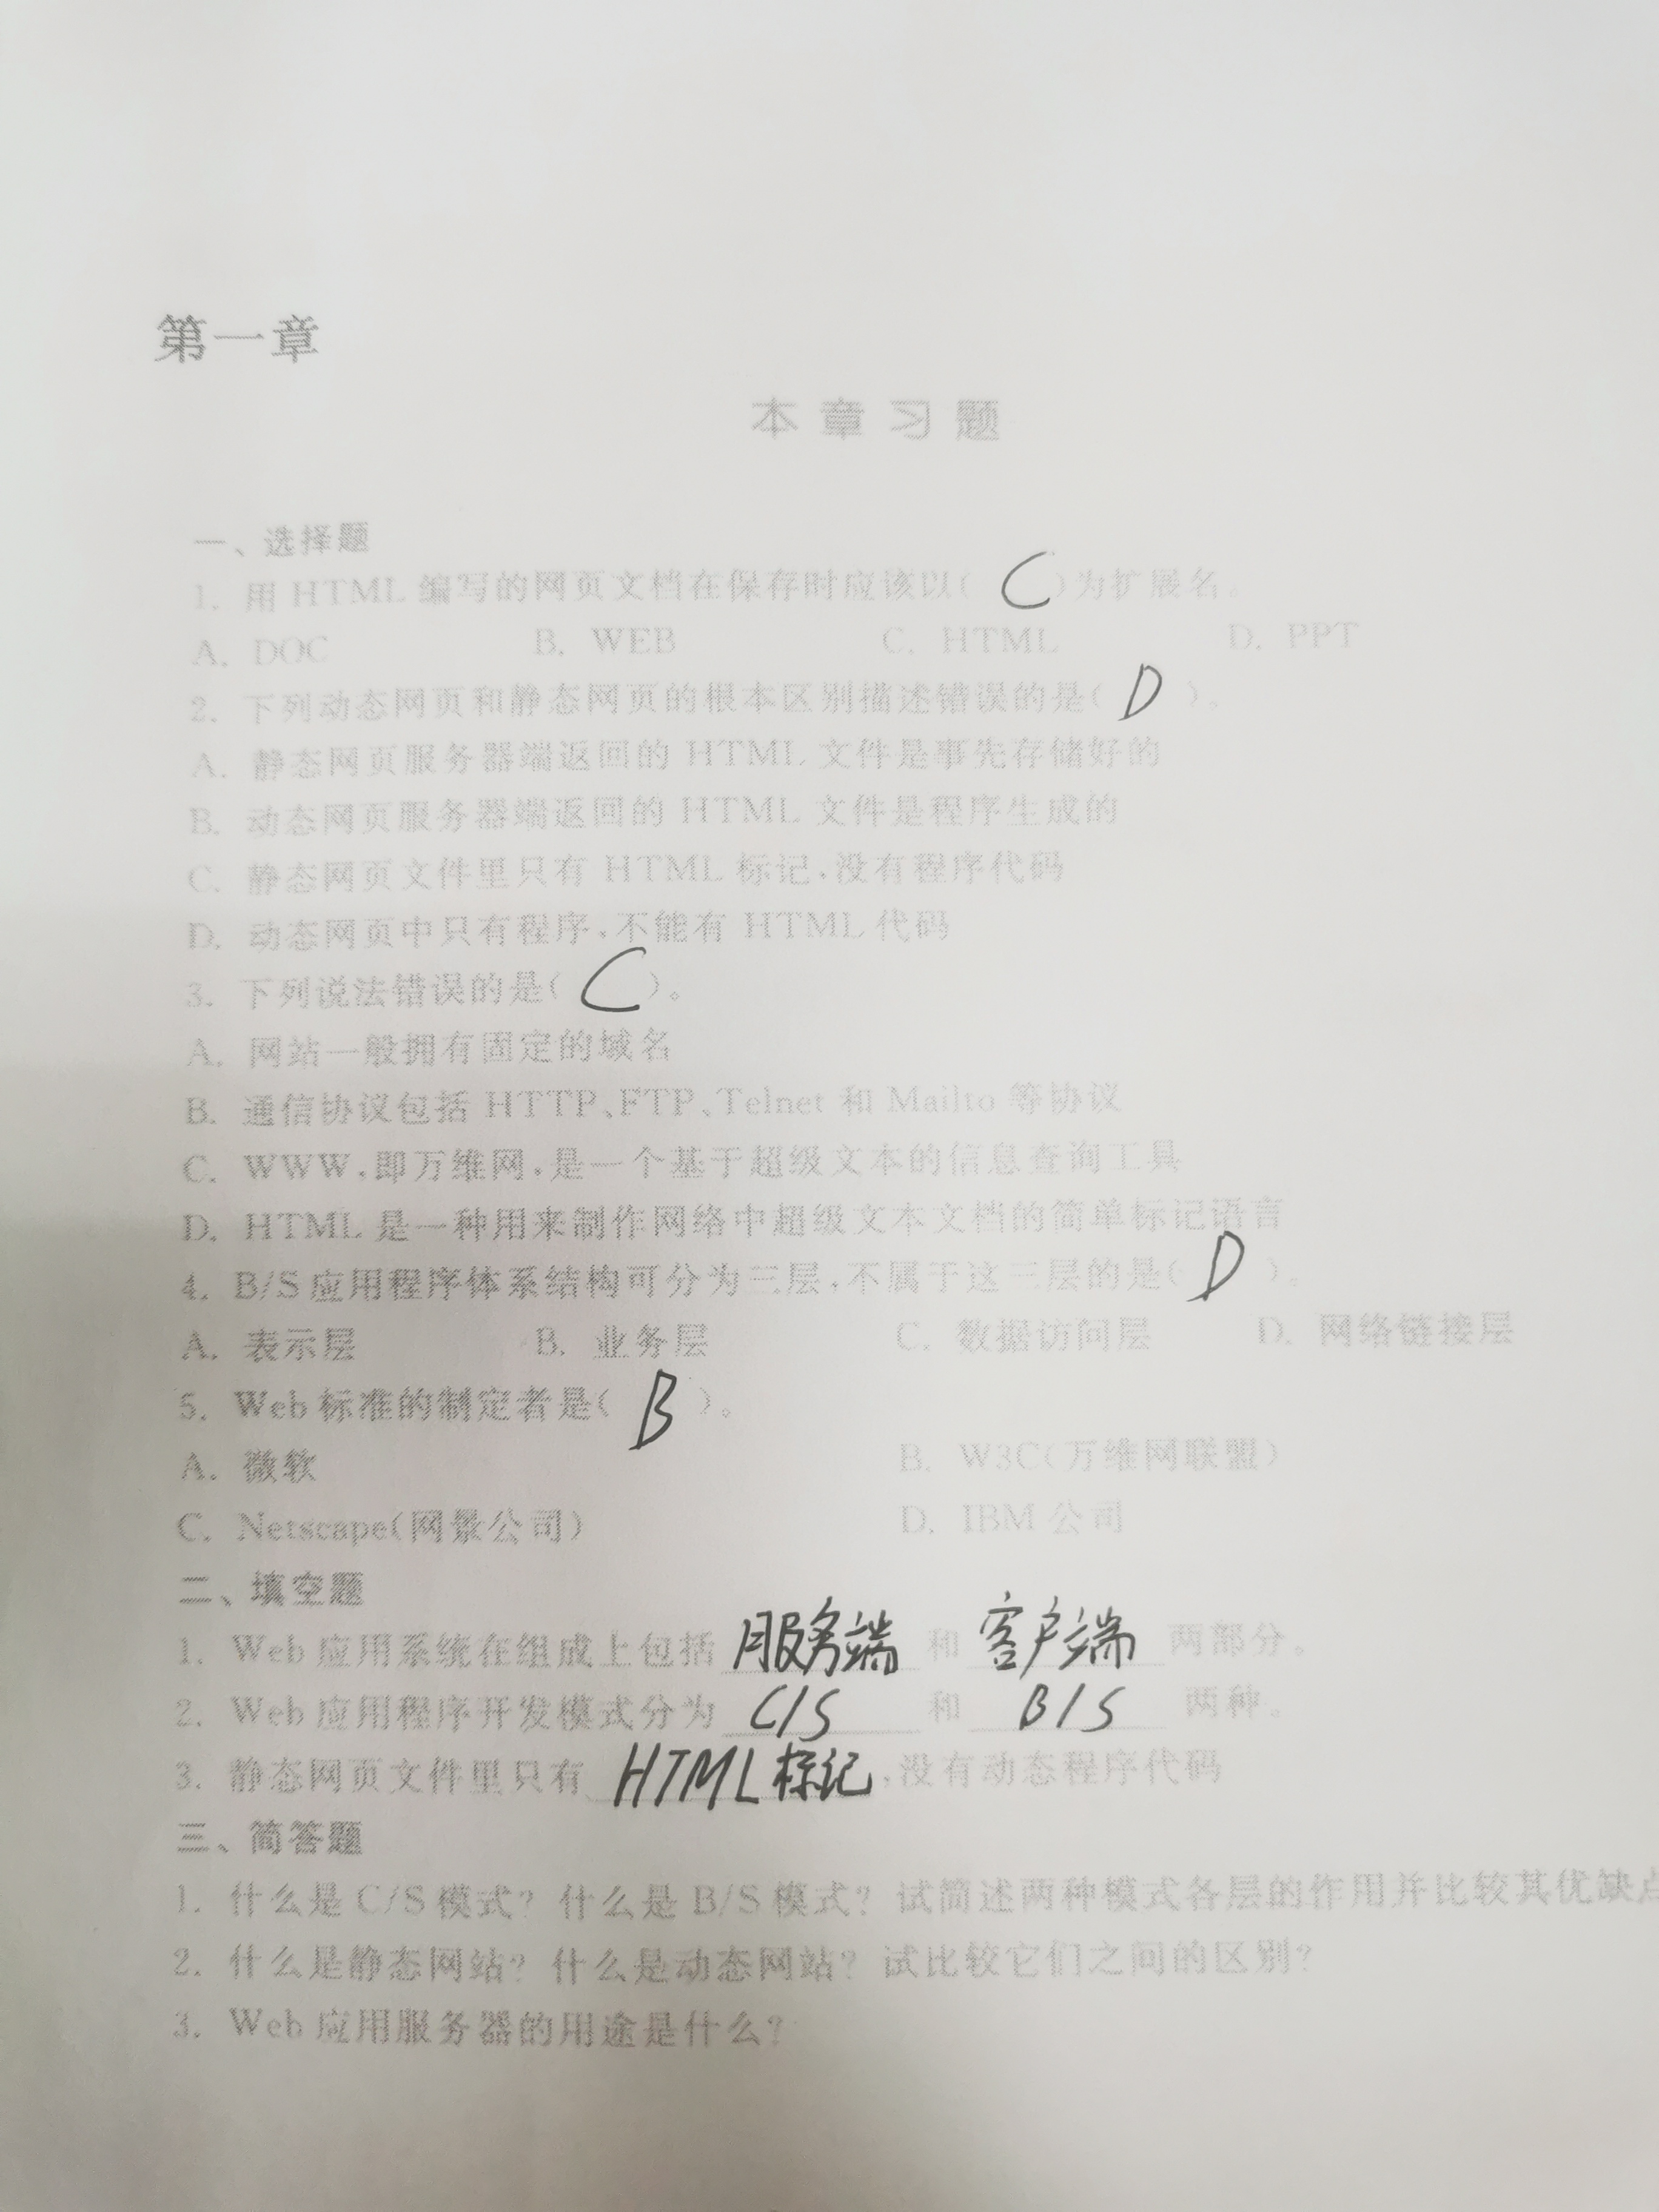 第一章
本章习题
一、选择题
1. 用 HTML 编写的网页文档在保存时应该以( C )为扩展名。
A. DOC B. WEB C. HTML D. PPT
2. 下列动态网页和静态网页的根本区别描述错误的是( D )。
A. 静态网页服务器端返回的 HTML 文件是事先存储好的
B. 动态网页服务器端返回的 HTML 文件是程序生成的
C. 静态网页文件里只有 HTML 标记,没有程序代码
D. 动态网页中只有程序,不能有 HTML 代码
3. 下列说法错误的是( C )。
A. 网站一般拥有固定的域名
B. 通信协议包括 HTTP、FTP、Telnet 和 Mailto 等协议
C. WWW,即万维网,是一个基于超级文本的信息查询工具
D. HTML 是一种用来制作网络中超级文本文档的简单标记语言
4. B/S 应用程序体系结构可分为三层,不属于这三层的是( D )。
A. 表示层 B. 业务层 C. 数据访问层 D. 网络链接层
5. Web 标准的制定者是( B )。
A. 微软 B. W3C(万维网联盟)
C. Netscape(网景公司) D. IBM 公司
二、填空题
1. Web 应用系统在组成上包括 服务端 和 客户端 两部分。
2. Web 应用程序开发模式分为 C/S 和 B/S 两种。
3. 静态网页文件里只有 HTML标记,没有动态程序代码
三、简答题
1. 什么是 C/S 模式? 什么是 B/S 模式? 试简述两种模式各层的作用并比较其优缺点
2. 什么是静态网站? 什么是动态网站? 试比较它们之间的区别?
3. Web 应用服务器的用途是什么?